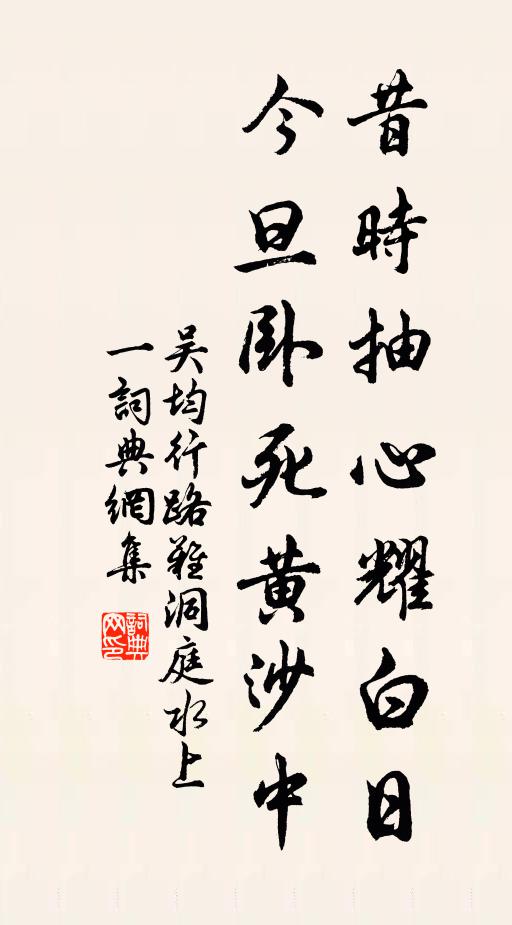 昔時抽心耀白日
今旦卧死黄沙中
吴均行路難洞庭水上
一詞典網集
詞典网印